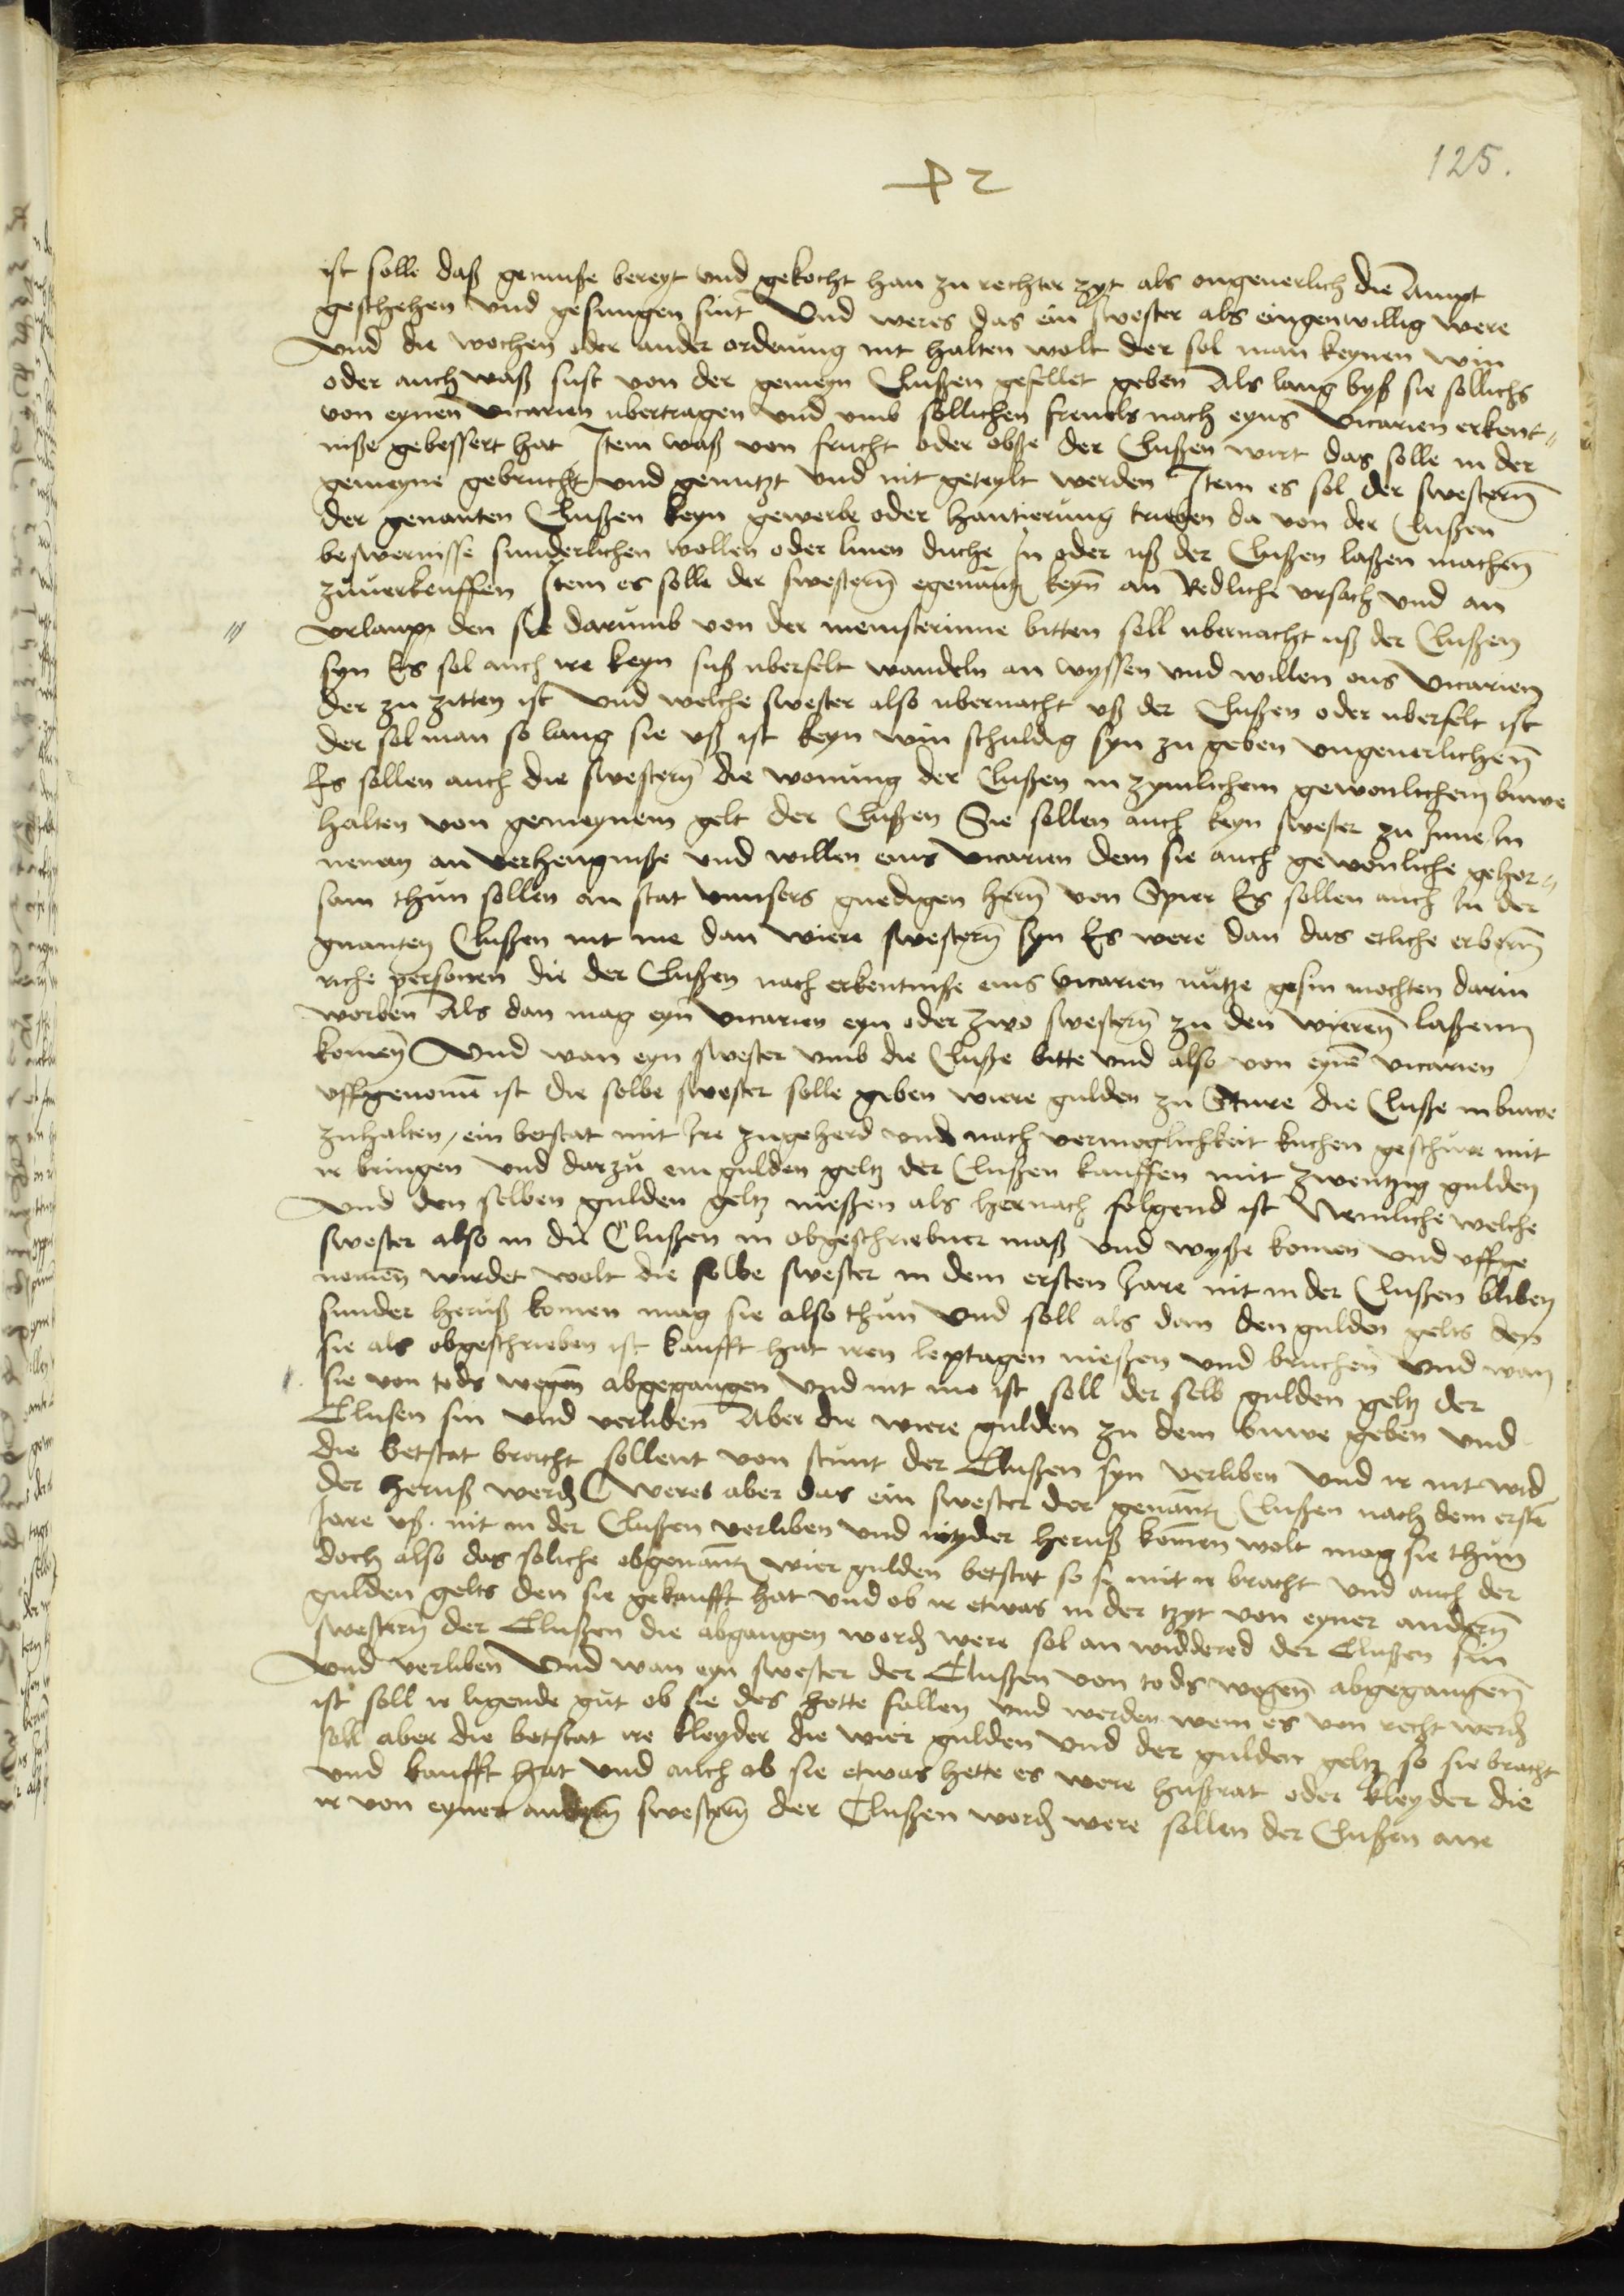 125.
ist solle daß gemuße bereyt vnd gekocht han zu rechter zyt als ongeuerlich die Ampt
geschehen vnd gesungen sint Vnd weres das ein swester als eingenwillig were
vnd die wochen oder ander ordenung nit halten wolt der sol man keynen win
oder auch waß sust von der gemeyn Clußen gefellet geben Als lang byß sie sollichs
von eynen vicarien ubertragen vnd vmb sollichen freuels nach eyns vicarien erkent-
niße gebessert hat Item waß von frucht oder obße der Clußen wirt das solle in der
gemeyne gebrucht vnd genutzt vnd nit geteylt werden Item es sol der swestern
der genanten Clußen keyn gewerbe oder hantierung trieben da von der Clußen
beswernisse sunderlichen wollen oder linen duche In oder uß der Clußen laßen machen
zuuerkeuffen Item es solle der swestern egenant keyn an Redliche vrsach vnd an
vrlaup den sie darumb von der meinsterinne bitten soll ubernacht uß der Clußen
syn Es sol auch ire keyn suß uberfelt wandeln an wyssen vnd willen eins vicarien
der zu zitten ist vnd welche swester also ubernacht vß der Clußen oder uberfelt ist
der sol man so lang sie vß ist keyn win schuldig syn zu geben vngeuerlichen
Es sollen auch die swestern die wonung der Clußen in zymlichem gewonlichem buwe
halten von gemeynem gelt der Clußen Sie sollen auch keyn swester zu Inne In
nemen an verhengniße vnd willen eins vicarien dem sie auch gewonliche gehor-
sam thun sollen an stat vnnsers gnedigen hern von Spier Es sollen auch In der
gnanten Clußen nit me dan viere swestern syn Es were dan das etliche erbern
riche personen die der Clußen nach erkentniße eins vicarien nutze gesin mochten darin
worben Als dan mag eyn vicarien eyn oder zwo swestern zu den vieren laßenn
komen Vnd wan eyn swester vmb die Cluße bitte vnd also von eynem vicarien
vffgenomen ist die selbe swester solle geben viere gulden zu Sture die Cluße in buwe
zuhalten, ein betstat mit Ire zugeherd vnd nach vermoglichkeit kuchen geschirre mit
ir bringen vnd darzu ein gulden geltz der Clußen kauffen mit zwentzig gulden
vnd den selben gulden geltz nießen als hernach folgend ist Nemliche welche
swester also in die Clußen in obgeschriebner maß vnd wyße komen vnd vffge
nomen wurdet wolt die selbe swester in dem ersten Jare nit in der Clußen bliben
sunder heruß komen mag sie also thun vnd soll als dan den gulden gelts den
sie als obgeschrieben ist kaufft hat iren leptagen nießen vnd bruchen vnd wan
sie von tods wegen abgegangen vnd nit me ist soll der selb gulden geltz der
Clusen sin vnd verliben Aber die viere gulden zu dem buwe geben vnd
die betstat bracht sollent von stunt der Clußen syn verliben vnd ir nit wid
der heruß werden Weres aber das ein swester der genant Clußen nach dem ersten
Jare vß nit in der Clußen verliben vnd wyder heruß komen wolt mag sie thun
doch also das soliche obgenant vier gulden betstat so sie mit ir bracht vnd auch der
gulden gelts den sie gekaufft hat vnd ob ir etwas in der tzyt von eyner andern
swestern der Clußen die abgangen worden were sol an widdered der Clußen sin
vnd verliben Vnd wan eyn swester der Clußen von tods wegen abgegangen
ist soll ir ligende gut ob sie des hette fallen vnd werden wem es von recht werden
soll aber die betstat ire kleyder die vier gulden vnd der gulden geltz so sie bracht
vnd kaufft hat vnd auch ob sie etwas hette es were hußrat oder kleyder die
ir von eyner andern swestern der Clußen worden were sollen der Clußen ane